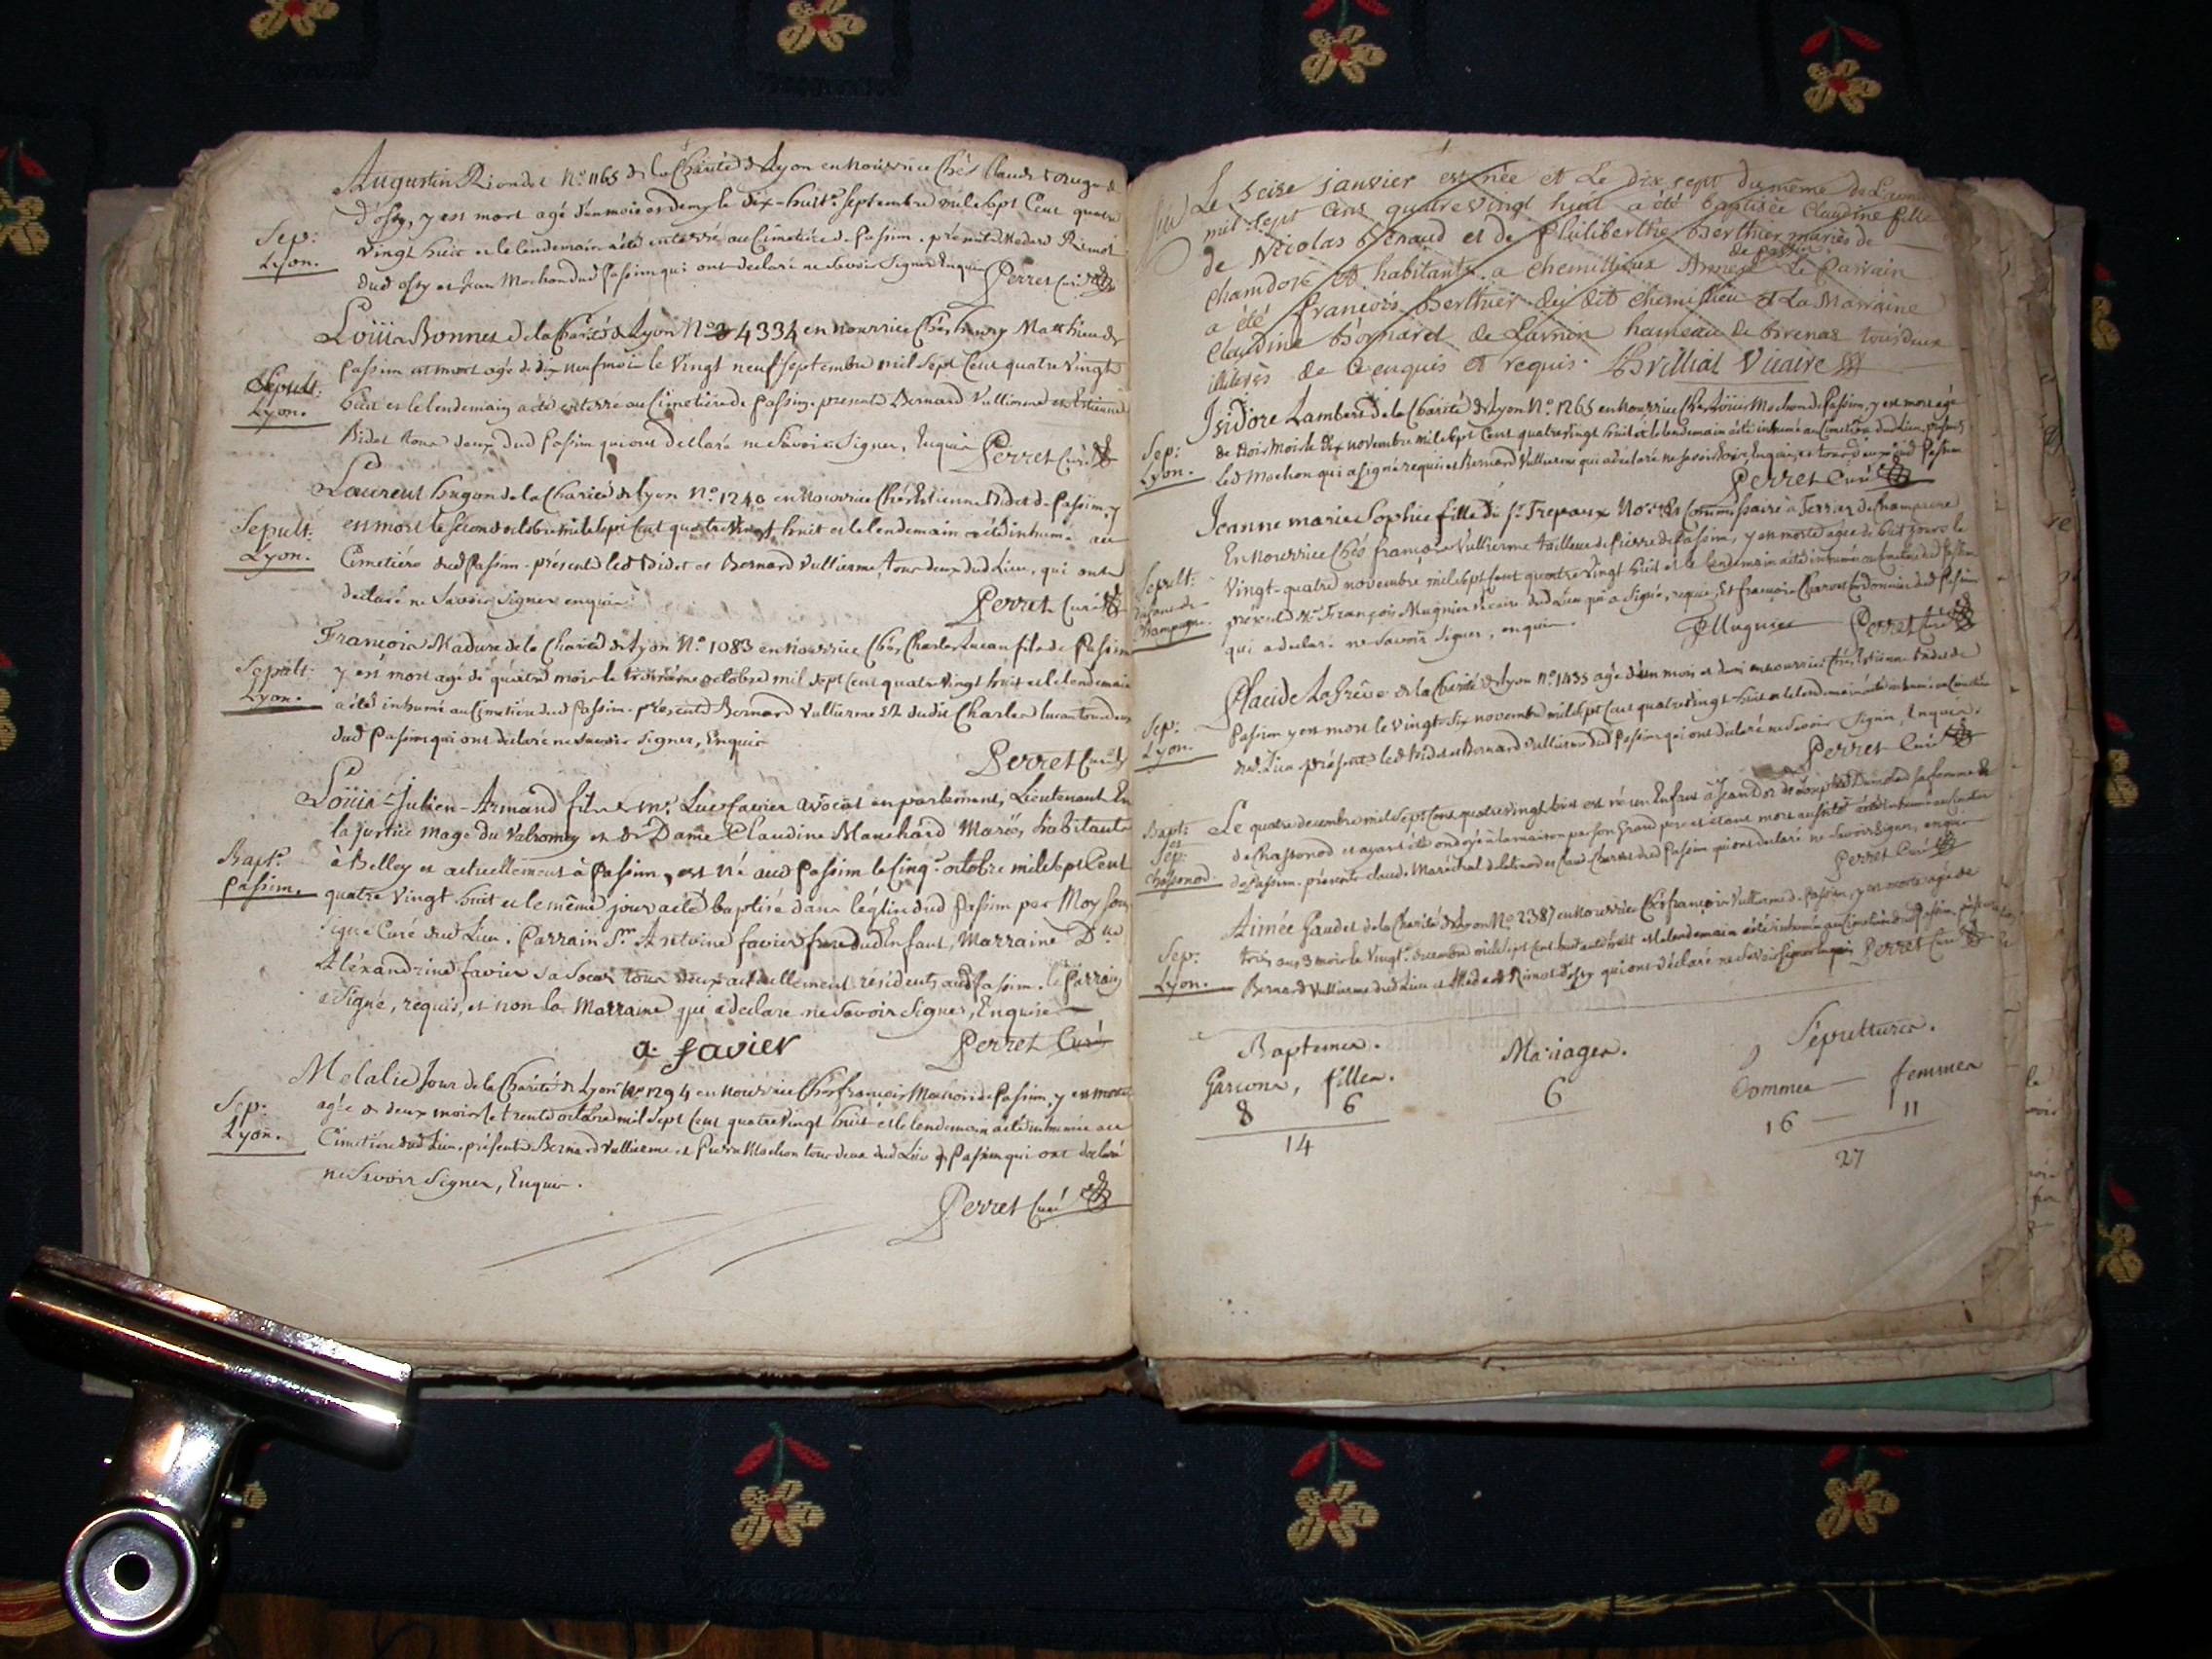 Augustin Riondet N.º 1165 de la Charité de Lyon en nourrice chés Claude
d'ossy, y est mort agé d'un mois et demy le dix-huit septembre mil sept Cent quatre
Sep:
Lyon.
vingt huit et le lendemain a été enterré au Cimetiere de Passim. présents Medard Rimot
dud ossy et Jean Mochon dud Passim qui ont declaré ne savoir signer Enquis Perret Curé
Loüis Bonnet de la Charité de Lyon N.º 4334 en nourrice chés henry Matthieu de
Sepult:
Lyon.
Passim est mort agé de dix neuf mois le vingt neuf septembre mil sept Cent quatre vingt
huit et le lendemain a été enterré au Cimetiere de Passim. presents Bernard Vullierme et Estienne
Bidet tous deux dud Passim qui ont declaré ne savoir signer, Enquis Perret Curé
Laurent hugon de la Charité de Lyon N.º 1240 en nourrice chés Estienne Bidet de Passim, y
Sepult:
Lyon.
est mort le second octobre mil sept Cent quatre vingt huit et le lendemain a été inhumé au
Cimetière dud Passim. présents led Bidet et Bernard Vullierme, tous deux dud Lieu, qui ont
declaré ne savoir signer enquis
Perret Curé
François Madure de la Charité de Lyon N.º 1083 en nourrice chés Charles Lucan fils de Passim
Sepult:
Lyon.
y est mort agé de quatre mois le troisième octobre mil sept Cent quatre vingt huit et le lendemain
a été inhumé au Cimetiere dud Passim. présents Bernard Vullierme et ledit Charles Lucan tous deux
dud Passim qui ont declaré ne savoir signer, Enquis
Perret Curé
Loüis-Julien-Armand fils de Mr. Luc favier avocat en parlement, Lieutenant En
la justice mage du Valromey et de Dame Claudine Blanchard Mariés, habitants
Bapt.
Passim.
à Belley et actuellement à Passim, est né aud Passim le Cinq octobre mil sept Cent
quatre vingt huit et le même jour a été baptisé dans l'église dud Passim par Moy sous
signé Curé dud Lieu. Parrain Sr. Antoine favier frere dud Enfant, Marraine Dlle
Aléxandrine favier sa soeur tous deux actuellement résidents aud Passim. le Parrain
a signé, requis, et non la Marraine qui a declaré ne savoir signer, Enquise
a. favier
Perret Curé
Melalie Jour de la Charité de Lyon N.º 1294 en nourrice chés françois Mochon de Passim, y est morte
Sep:
Lyon.
agée de deux mois le trente octobre mil sept Cent quatre vingt huit et le lendemain a été inhumée au
Cimetière dud Lieu, présents Bernard Vullierme et Pierre Mochon tous deux dud Lieu de Passim qui ont declaré
ne savoir signer, Enquis.
Perret Curé
Le seize janvier est née et Le dix sept du même de L'année
mil sept Cens quatre vingt huit a été baptisée Claudine fille
de Nicolas Benaud et de Philiberthe Berthier mariés de
chamdore et habitants a Chemillieux Annexe de Passin Le Parrain
a été François Berthier du dit chemillieu et La Marraine
Claudine Bornaret de Lavnin hameau de Brenas tous deux
illiterés de ce enquis et requis. Brillat Vicaire
Isidore Lambert de la Charité de Lyon N.º 1265 en nourrice chés Loüis Mochon de Passim, y est mort agé
Sep:
Lyon.
de trois mois le dix novembre mil sept Cent quatre vingt huit et le lendemain a été inhumé au Cimetière dud Lieu, présents
led Mochon qui a signé requis et Bernard Vullierme qui a declaré ne savoir signer Enquis, tous deux dud Passim
Perret Curé
Jeanne marie Sophie fille du sr. Trepaux Nore. et Commissaire à Terrier de Champagne
Sepult:
Champagne.
En nourrice chés françois Vullierme tailleur de Pierre de Passim, y est morte agée de huit jours le
vingt-quatre novembre mil sept Cent quatre vingt huit et le lendemain a été inhumée au Cimetière dud Passim
présents Mr. François Mugnier vicaire dud Lieu qui a signé, requis, Et françois Charvet Cordonnier dud Passim
qui a declaré ne savoir signer, enquis.
Mugnier Perret Curé
Placide La Grêve de la Charité de Lyon N.º 1435 agé d'un mois et demi en nourrice chés Estienne Bidet de
Sep:
Lyon.
Passim y est mort le vingt-six novembre mil sept Cent quatre vingt huit et le lendemain a été inhumé au Cimetière
dud Lieu présents led Bidet et Bernard Vullierme dud Passim qui ont declaré ne savoir signer, Enquis.
Perret Curé
Bapt:
et
Sep:
Chassonod.
Le quatre decembre mil sept Cent quatre vingt huit est né un Enfant à Jean sa femme
de Chassonod et ayant été ondoyé à la maison par son Grand pere et étant mort aussitôt a été inhumé au Cimetière
de Passim. présents claude Maréchal et Claude Charvet dud Passim qui ont declaré ne savoir signer, enquis
Perret Curé
Aimée Gaudet de la Charité de Lyon N.º 2387 en nourrice chés françois Vullierme de Passim, y est morte agée de
Sep:
Lyon.
trois ans 3 mois le vingt decembre mil sept Cent huitante huit et le lendemain a été inhumée au Cimetière dud Passim, présents
Bernard Vullierme dud Lieu et Medard Rimot d'ossy qui ont déclaré ne savoir signer Enquis Perret Curé
Baptemes. Mariages. Sépultures.
Garçons, filles. 6 hommes — femmes
8 6 16 — 11
14 27